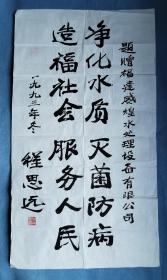 题赠福达威煌水处理设备有限公司
净化水质 灭菌防病
造福社会 服务人民
一九九三年冬
程思远